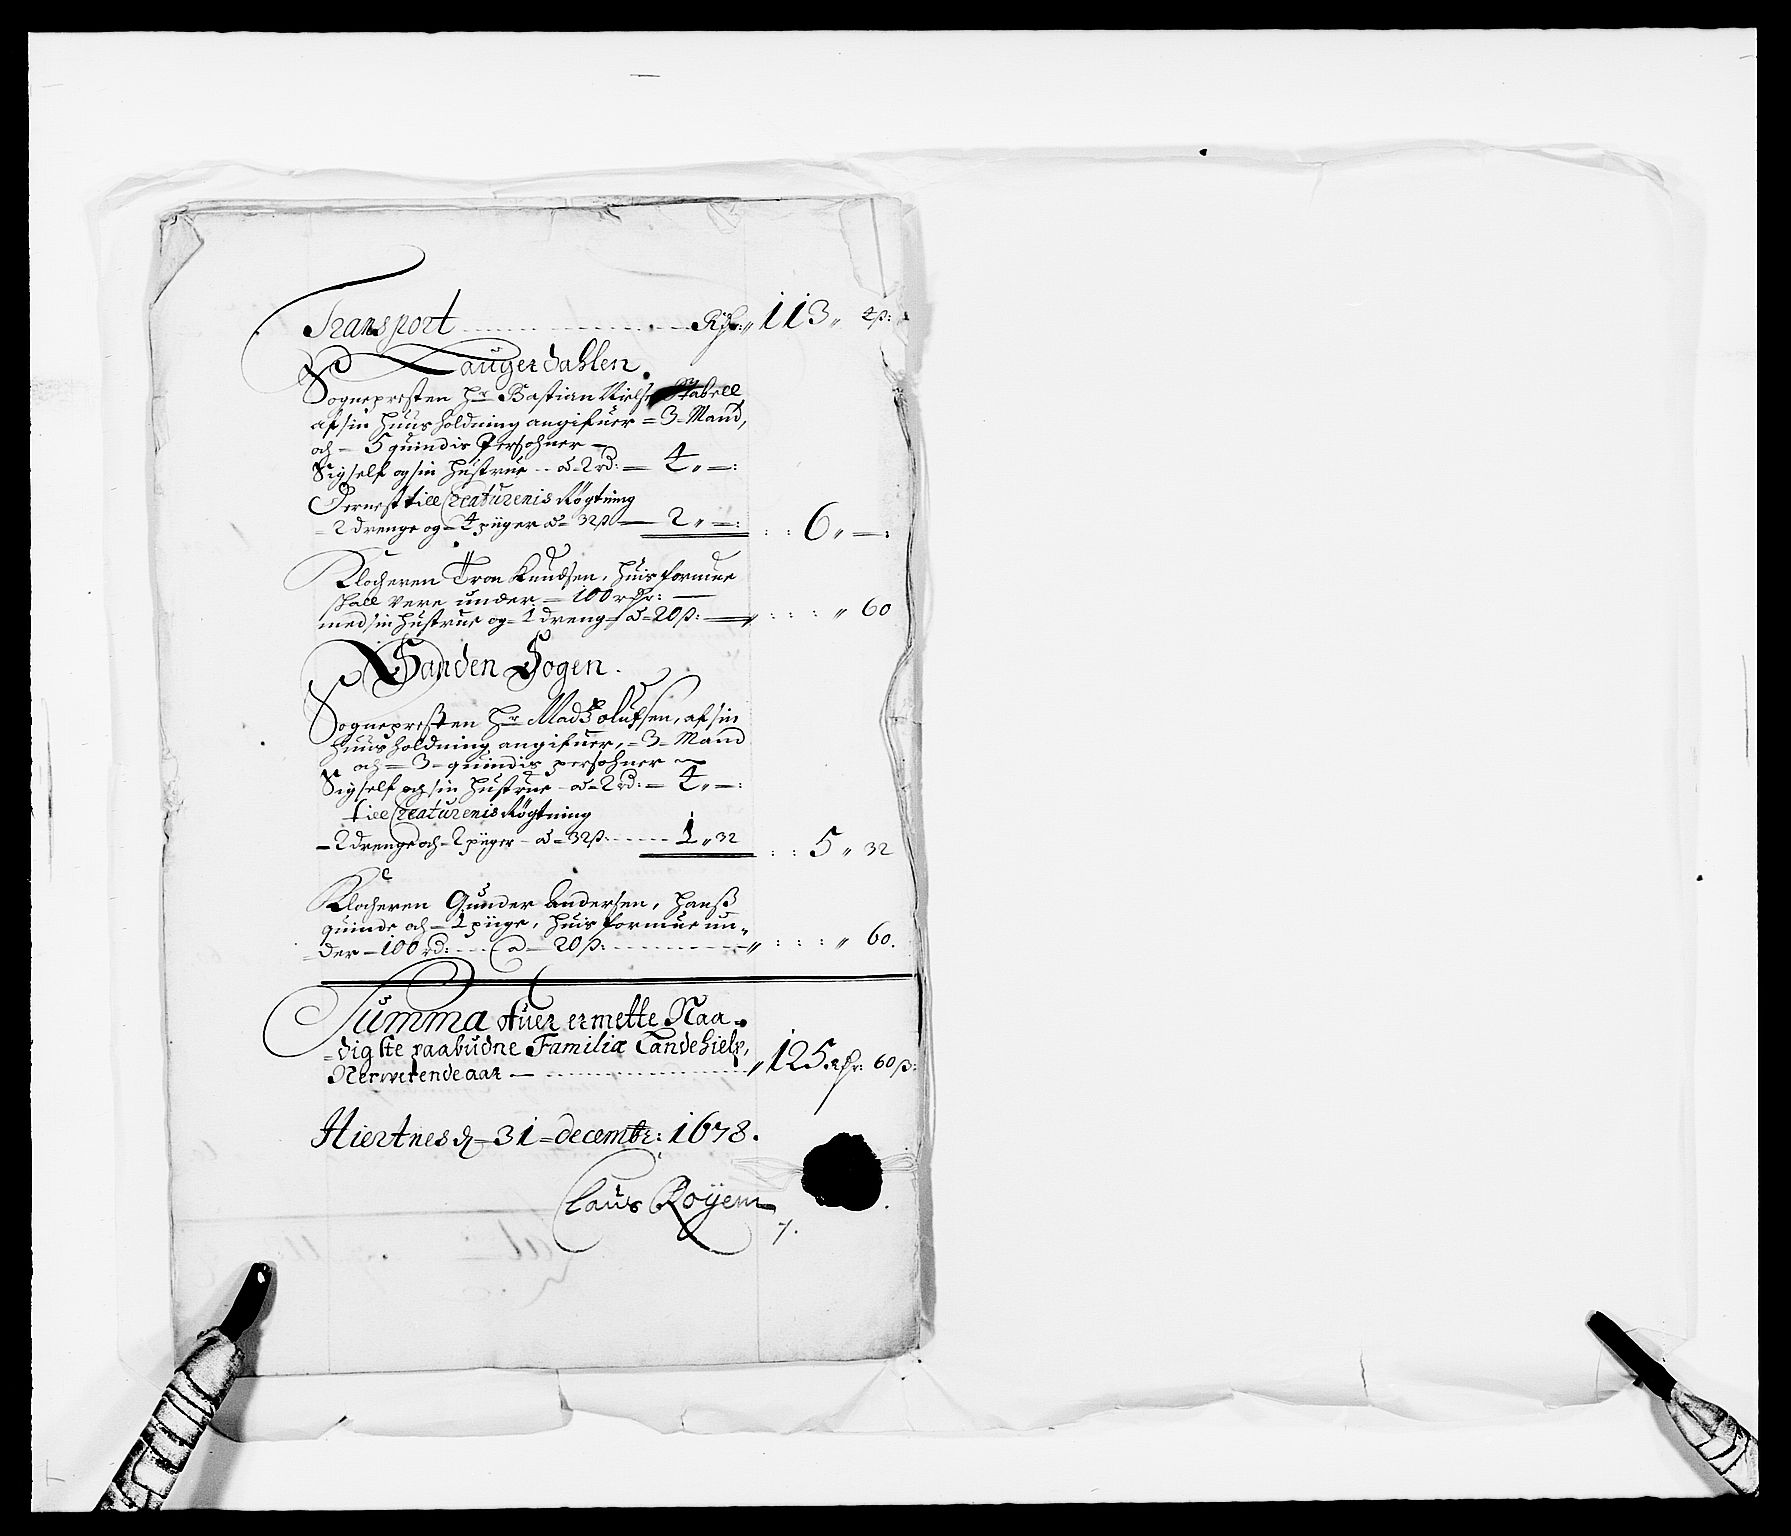 Transport - - - Rdr: „ 113 „ 4 ß:
Laugerdahlen.
Sognepresten Hr Bastian Nielsen Stabell
af sin huusholdning angifuer = 3 - Mand,
och - 5 quindis Persohner -
Sigself og sin hustrue - à - 2 rd: - 4 „ - :
Dernest till Creaturenis Røgtning
- 2 drenge og - 4 piiger à - 32 ß - 2 „ - : : : 6 „ - :
Klocheren Tron Knudsen, huis formue
skall vere under - 100 rdr: -
med sin hustrue og - 1 dreng - à - 20 ß: - „ : : : „ 60
Sanden Sogen.
Sognepresten Hr Mads olufsen, af sin
huusholdning angifuer, - 3 - Mand
och - 3 - quindis persohner -
Sigself og sin hustrue - à - 2 rd: - 4 „ - :
till Creaturenis Røgtning
- 2 drenge och - 2 piiger - à - 32 ß: - - - 1 „ 32 : : 5 „ 32
Klocheren Gunder Andersen, hanß
quinde och - 1 piige, huis formue un„
der - 100 rd: - - à - 20 ß: - - - „ : : : „ 60.
Summa ofuer ermette Naa„
digste paabudne Familiæ Landehielp,
Nerwerende aar - - - „ 125 Rdr: 60 ß:
Hiertnes d - 31 - decembr: 1678.
Claus Røyem